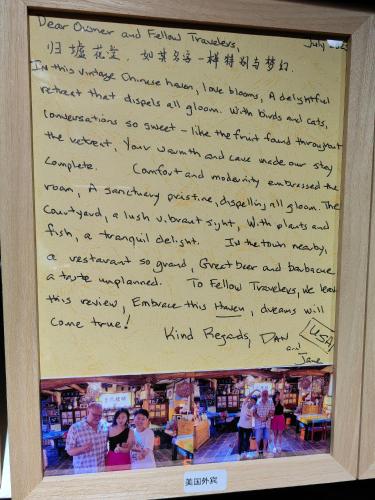 Dear Owner and Fellow Travelers,
July 202
归墟花堂, 如其名字一样特别与梦幻.
In this vintage Chinese haven, love blooms, A delightful
retreat that dispels all gloom. With birds and cats,
conversations so sweet - like the fruit found throughout
the retreat, Your warmth and care made our stay
complete. Comfort and modernity embraced the
room, A sanctuary pristine, dispelling all gloom. The
Courtyard, a lush vibrant sight, With plants and
fish, a tranquil delight. In the town nearby,
a restaurant so grand, Great beer and barbacue
a taste unplanned. To Fellow Travelers, we leave
this review, Embrace this Haven, dreams will
come true!
Kind Regards, Dan
and
Jane
USA
美国外宾